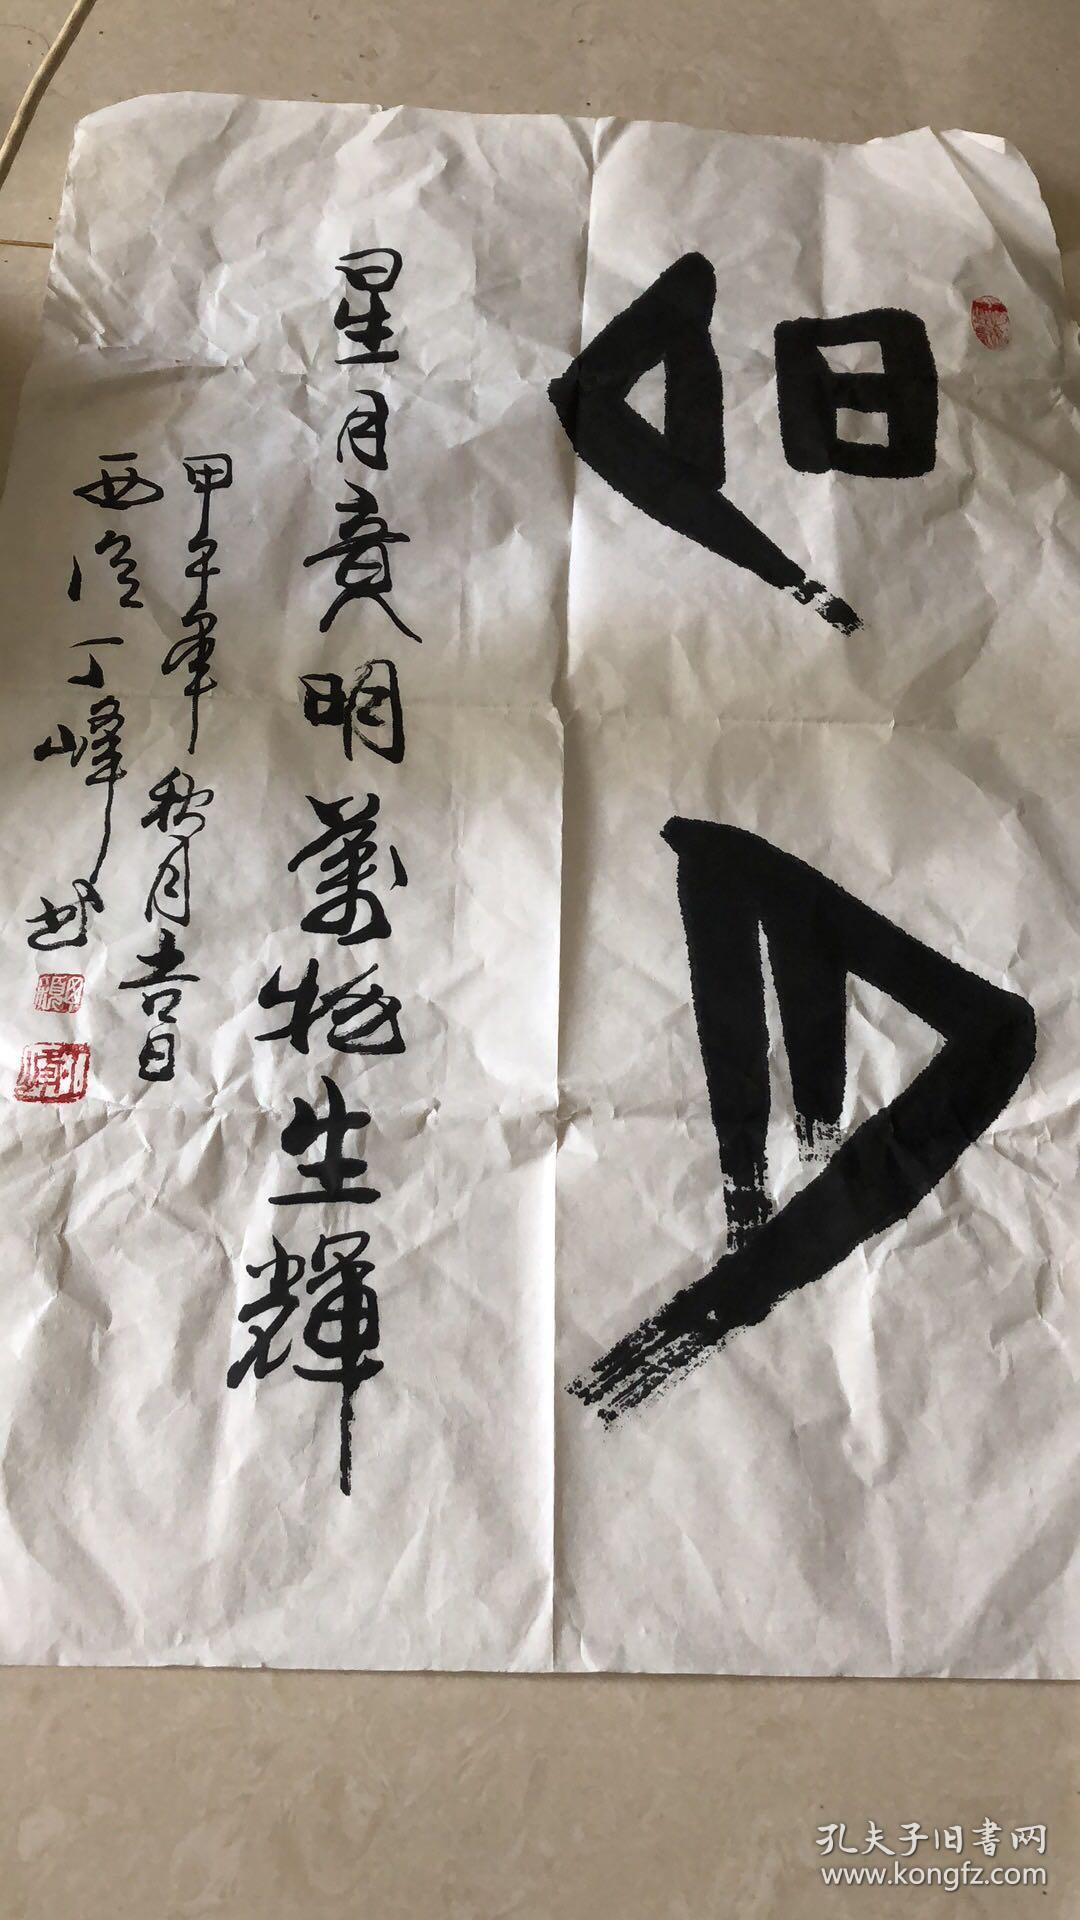 明月
星月竟明萬物生輝
甲午年秋月吉日
西泠丁峰书
孔夫子旧書网
www.kongfz.com